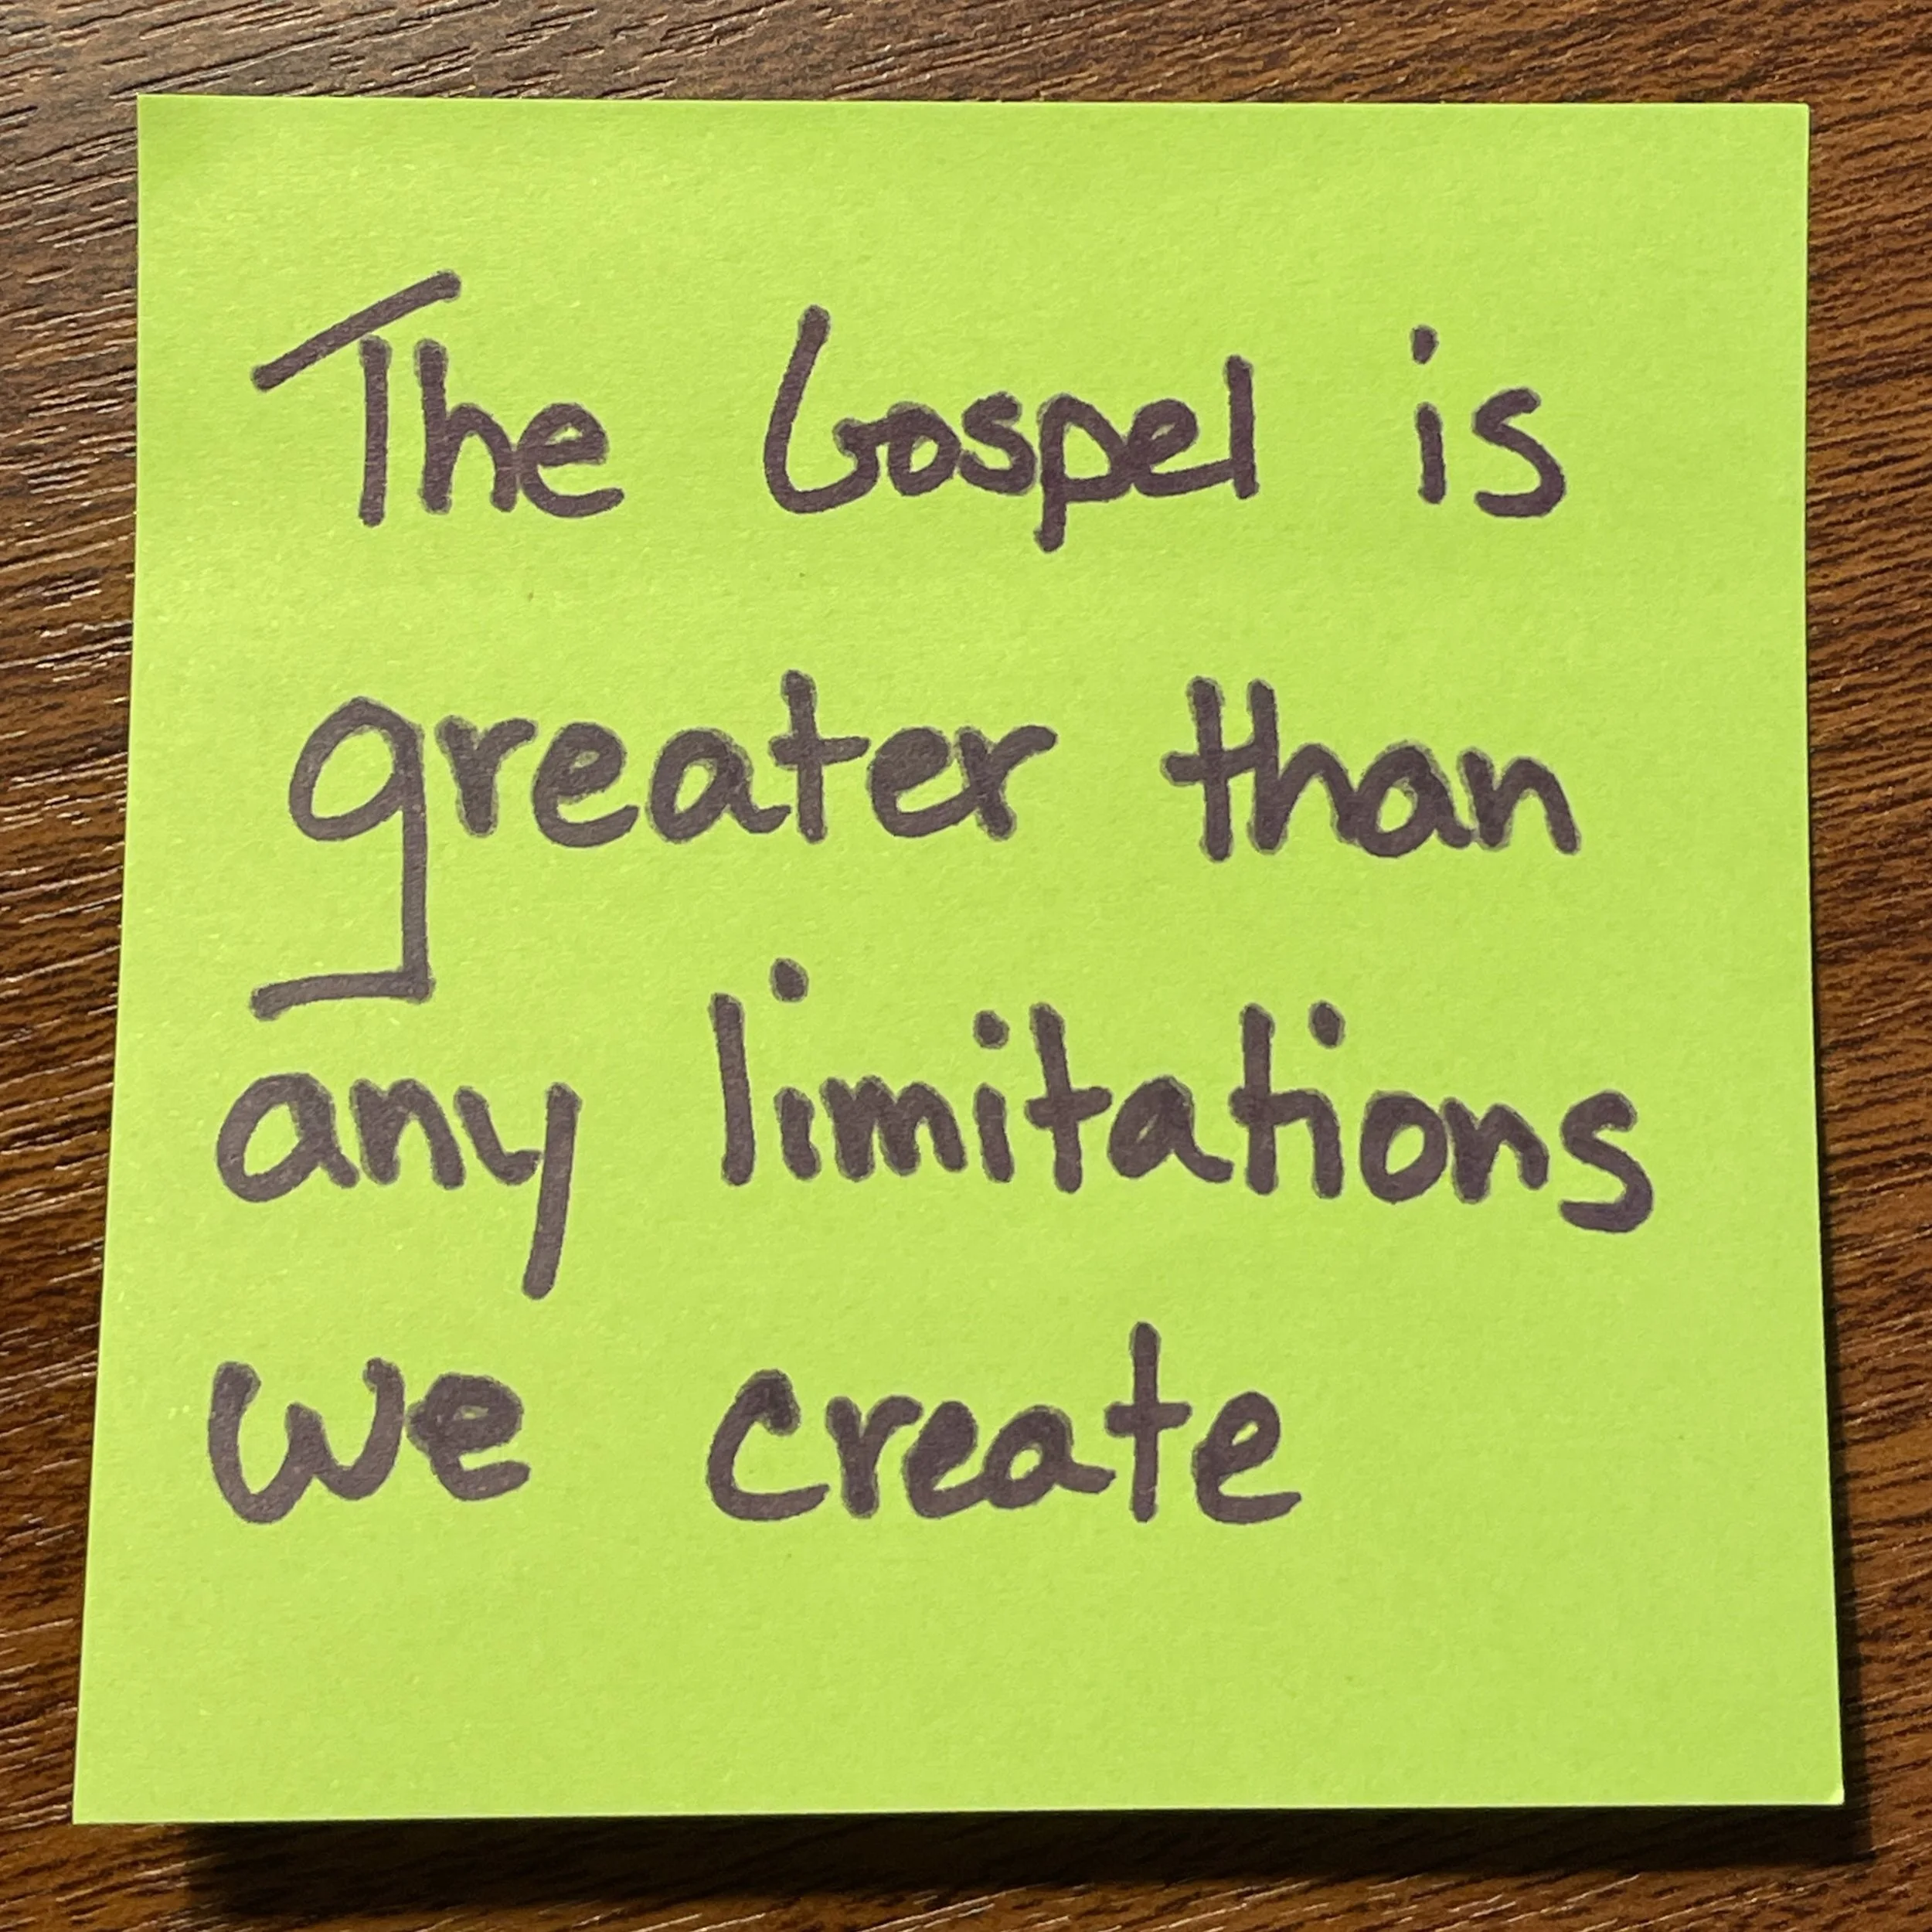 The Gospel is
greater than
any limitations
we create